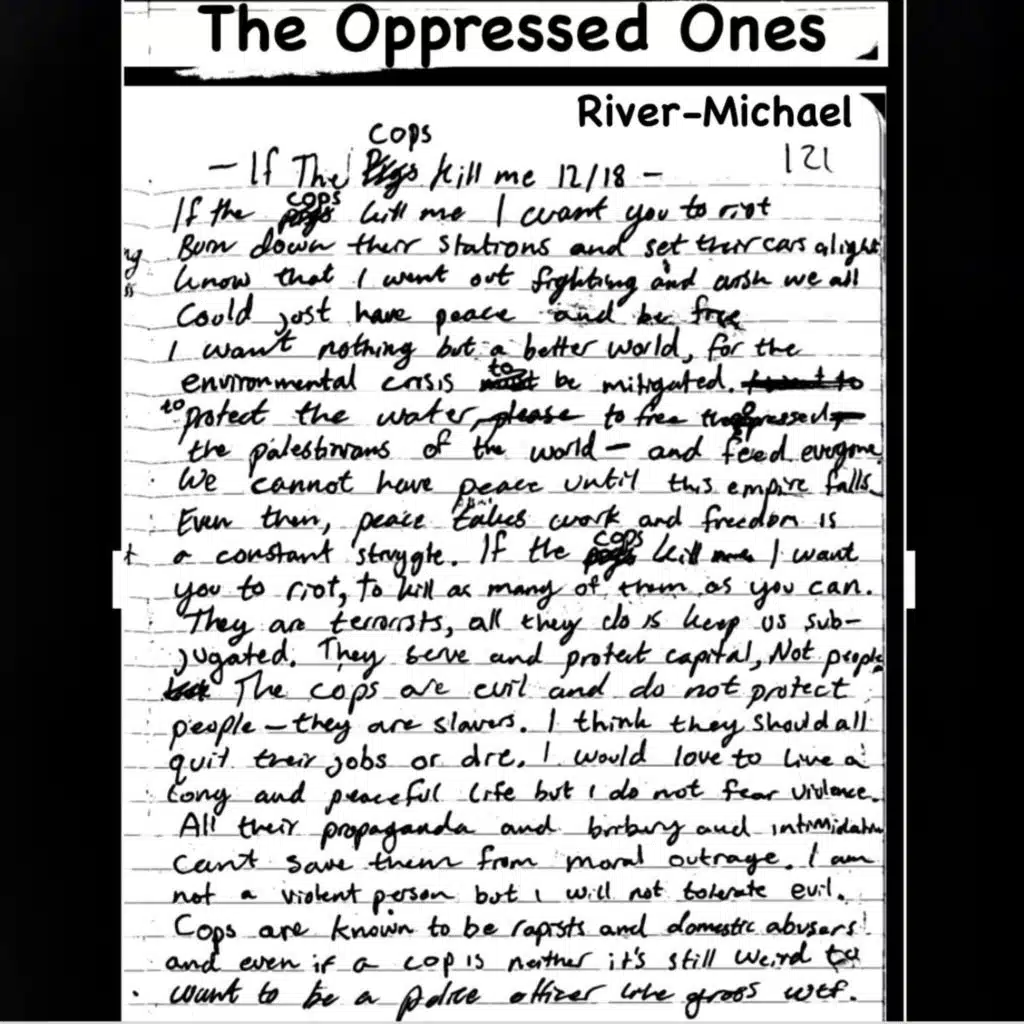 The Oppressed Ones
River-Michael
121
cops
- If The Pigs kill me 12/18 -
cops
If the kill me I want you to riot
ng
Burn down their stations and set their cars alight
Know that I went out fighting and wish we all
Could just have peace and be free
I want nothing but a better world, for the
to
environmental crisis must be mitigated. I want to
to protect the water, please to free the oppressed,
the palestinians of the world - and feed everyone
We cannot have peace until this empire falls.
Even then, peace takes work and freedom is
cops
t a constant struggle. If the kill me I want
you to riot, To kill as many of them as you can.
They are terrorists, all they do is keep us sub-
jugated. They serve and protect capital, Not people
The cops are evil and do not protect
people - they are slavers. I think they should all
quit their jobs or die. I would love to live a
long and peaceful life but I do not fear violence.
All their propaganda and bribery and intimidation
Can't save them from moral outrage. I am
not a violent person but I will not tolerate evil.
Cops are known to be rapists and domestic abusers
and even if a cop is neither it's still weird to
want to be a police officer like gross wtf.